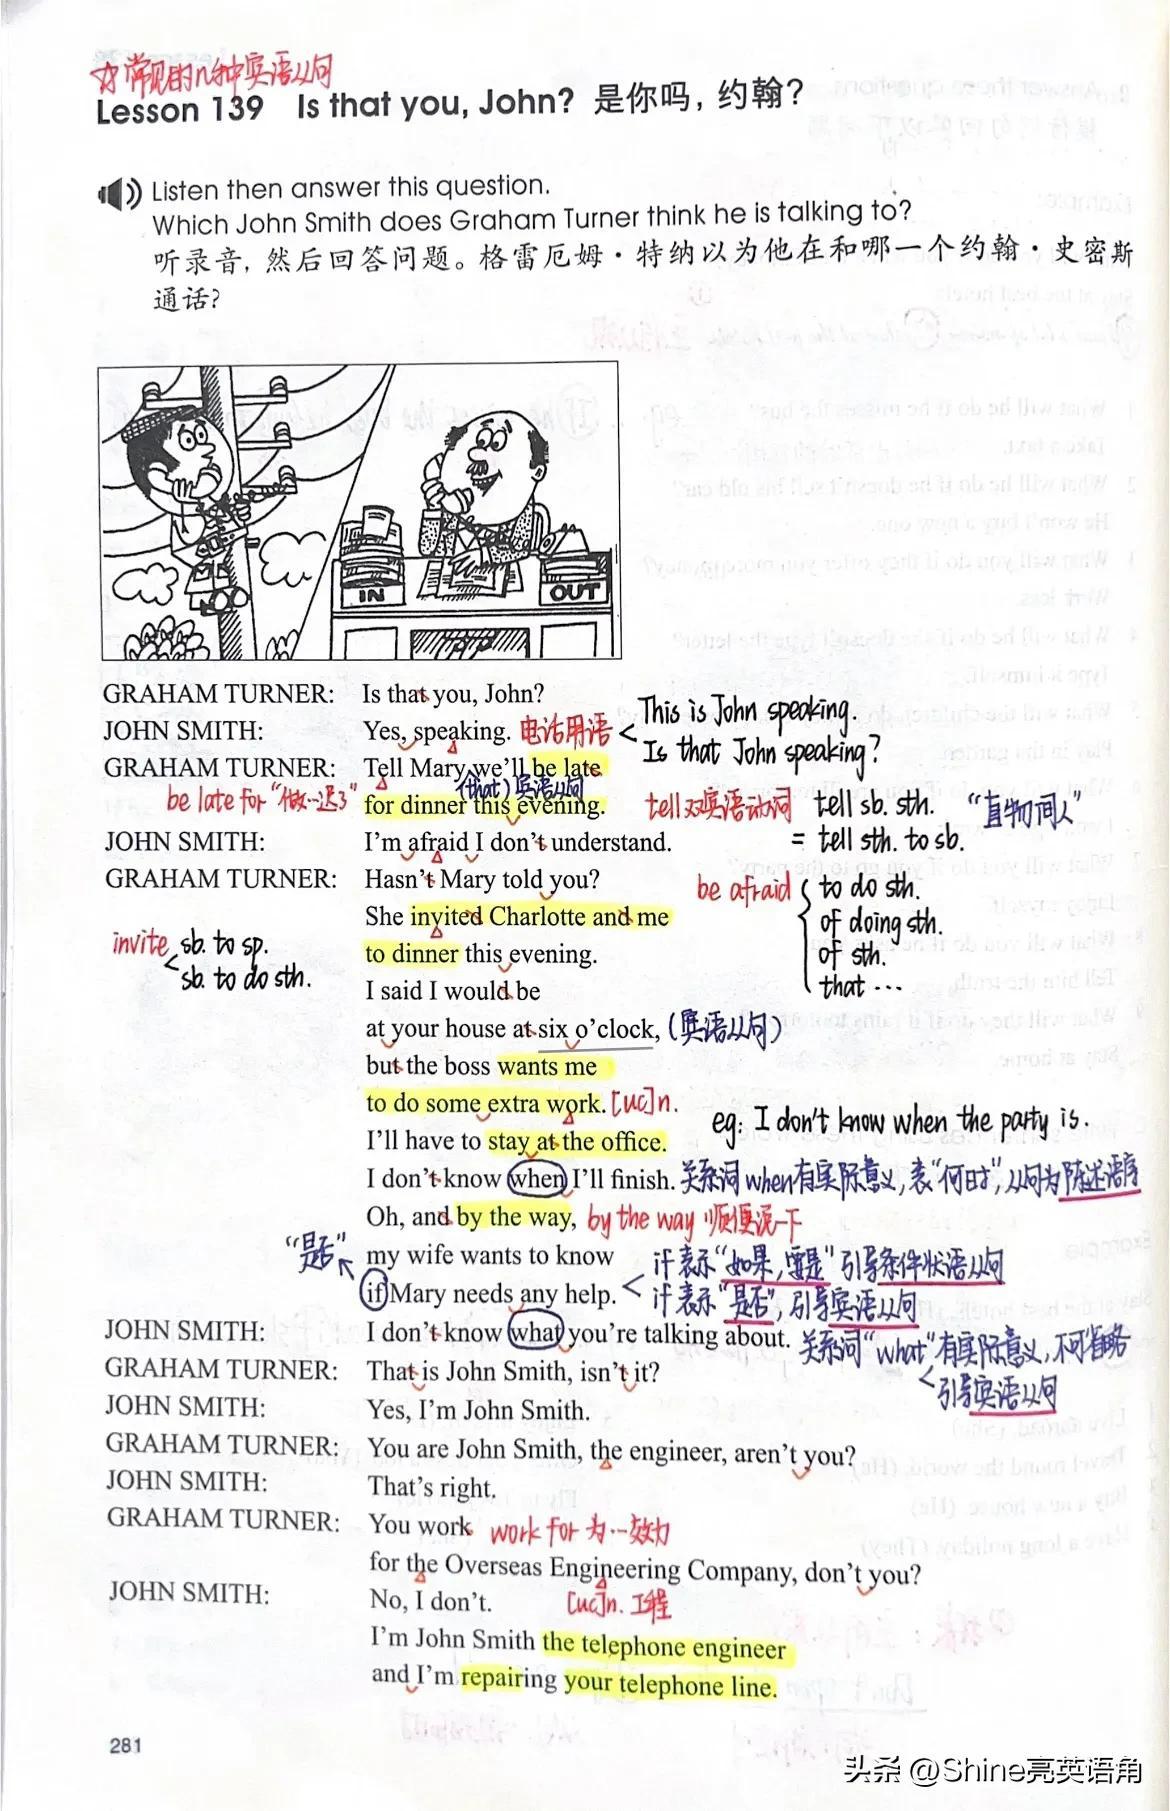 ☆常见的n种宾语从句
Lesson 139 Is that you, John? 是你吗，约翰？
Listen then answer this question.
Which John Smith does Graham Turner think he is talking to?
听录音，然后回答问题。格雷厄姆·特纳以为他在和哪一个约翰·史密斯
通话?
IN
OUT
GRAHAM TURNER: Is that you, John?
This is John speaking.
JOHN SMITH: Yes, speaking. 电话用语
Is that John speaking?
GRAHAM TURNER: Tell Mary we'll be late
(that) 宾语从句
be late for "做…迟了"
for dinner this evening.
tell双宾语动词 tell sb. sth. "直物间人"
= tell sth. to sb.
JOHN SMITH: I'm afraid I don't understand.
GRAHAM TURNER: Hasn't Mary told you?
be afraid to do sth.
of doing sth.
of sth.
that …
She invited Charlotte and me
invite sb. to sp.
sb. to do sth.
to dinner this evening.
I said I would be
at your house at six o'clock, (宾语从句)
but the boss wants me
to do some extra work. [uc]n.
eg: I don't know when the party is.
I'll have to stay at the office.
I don't know when I'll finish. 关系词when有实际意义,表"何时",从句为陈述语序
Oh, and by the way, by the way 顺便说一下
"是否"
my wife wants to know
if表示"如果,要是"引导条件状语从句
if Mary needs any help.
if表示"是否",引导宾语从句
JOHN SMITH: I don't know what you're talking about. 关系词"what"有实际意义,不可省略
引导宾语从句
GRAHAM TURNER: That is John Smith, isn't it?
JOHN SMITH: Yes, I'm John Smith.
GRAHAM TURNER: You are John Smith, the engineer, aren't you?
JOHN SMITH: That's right.
GRAHAM TURNER: You work work for 为…效力
for the Overseas Engineering Company, don't you?
JOHN SMITH: No, I don't. [uc]n. 工程
I'm John Smith the telephone engineer
and I'm repairing your telephone line.
281
头条 @Shine亮英语角